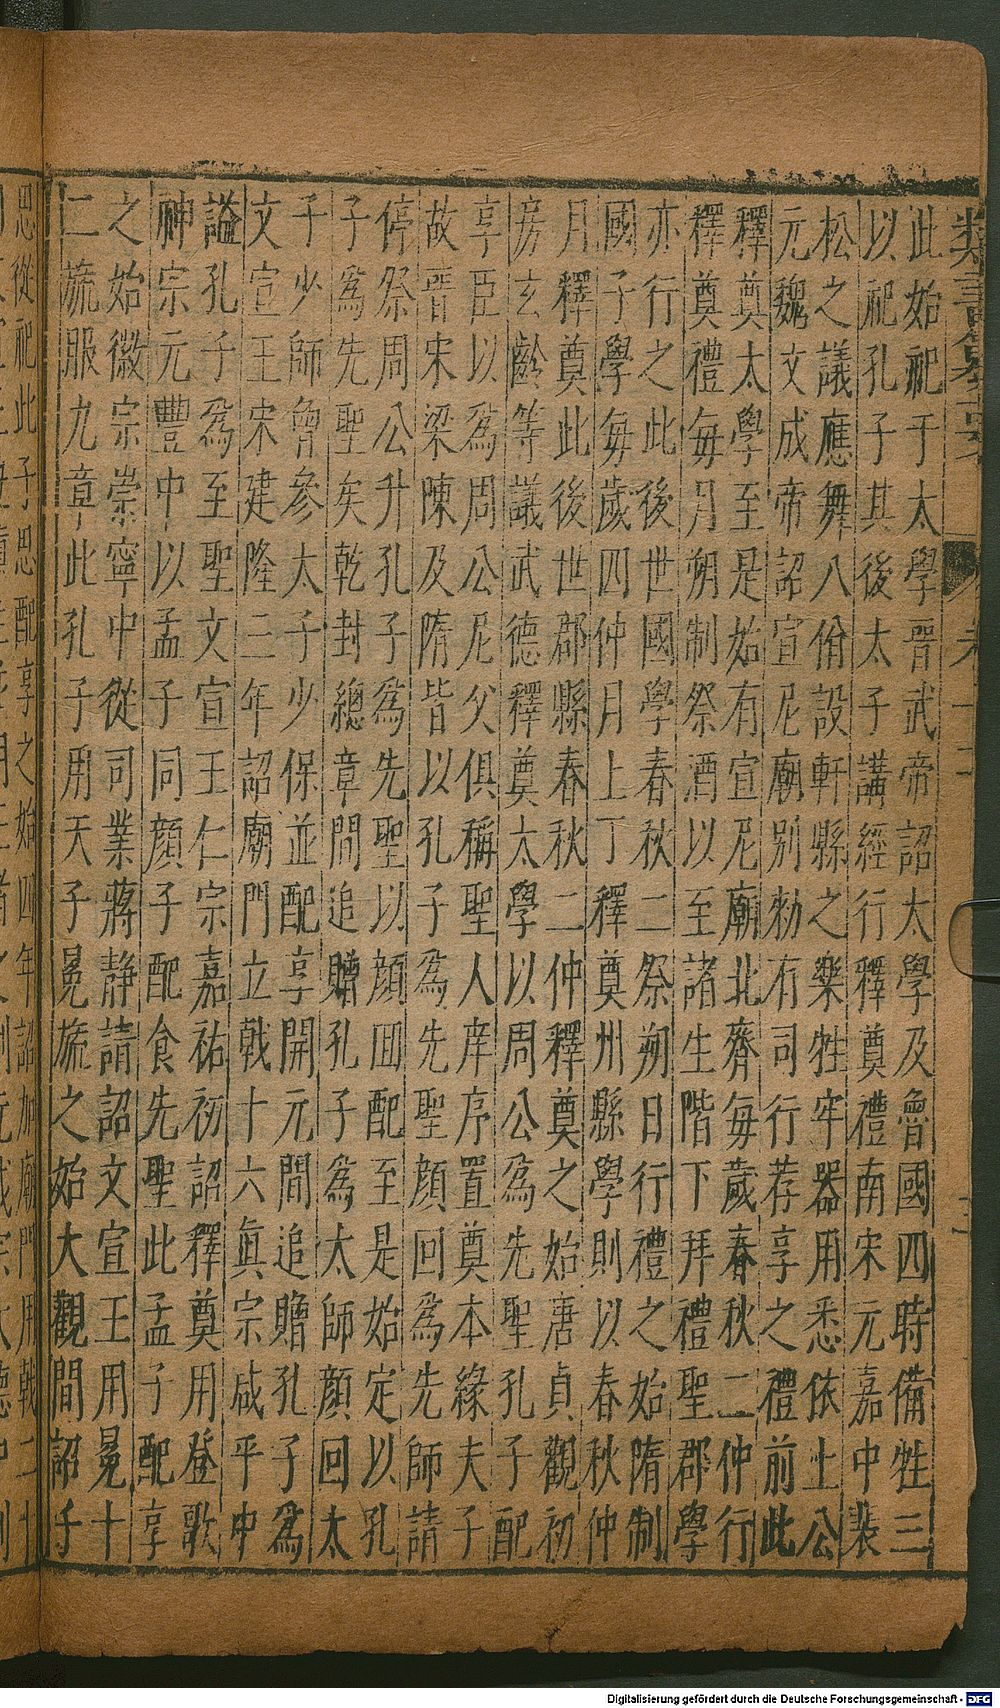 此始祀于太學晋武帝詔太學及魯國四時備牲三
以祀孔子其後太子講經行釋奠禮南宋元嘉中裴
松之議應舞八佾設軒縣之樂牲牢器用悉依上公
元魏文成帝詔宣尼廟別勑有司行荐享之禮前此
釋奠太學至是始有宣尼廟北齊每歲春秋二仲行
釋奠禮每月朔制祭酒以至諸生階下拜禮聖郡學
亦行之此後世國學春秋二祭朔日行禮之始隋制
國子學每歲四仲月上丁釋奠州縣學則以春秋仲
月釋奠此後世郡縣春秋二仲釋奠之始唐貞觀初
房玄齡等議武德釋奠太學以周公爲先聖孔子配
享臣以爲周公尼父俱稱聖人庠序置奠本緣夫子
故晋宋梁陳及隋皆以孔子爲先聖顔回爲先師請
停祭周公升孔子爲先聖以顔囬配至是始定以孔
子爲先聖矣乾封總章間追贈孔子爲太師顔回太
子少師曾參太子少保並配享開元間追贈孔子爲
文宣王宋建隆三年詔廟門立戟十六眞宗咸平中
謚孔子爲至聖文宣王仁宗嘉祐初詔釋奠用登歌
神宗元豐中以孟子同顔子配食先聖此孟子配享
之始徽宗崇寧中從司業蔣静請詔文宣王用冕十
二旒服九章此孔子用天子冕旒之始大觀間詔子
思從祀此子思配享之始四年詔加廟門用戟二十
Digitalisierung gefördert durch die Deutsche Forschungsgemeinschaft - DFG